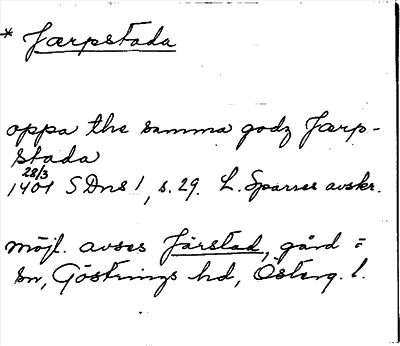 * Jærpstada
oppa the samma godz Jærp-
stada
28/3
1401 SDns 1, s. 29. L. Sparres avskr.
möjl. avses Järstad, gård i
sn, Göstrings hd, Österg. l.